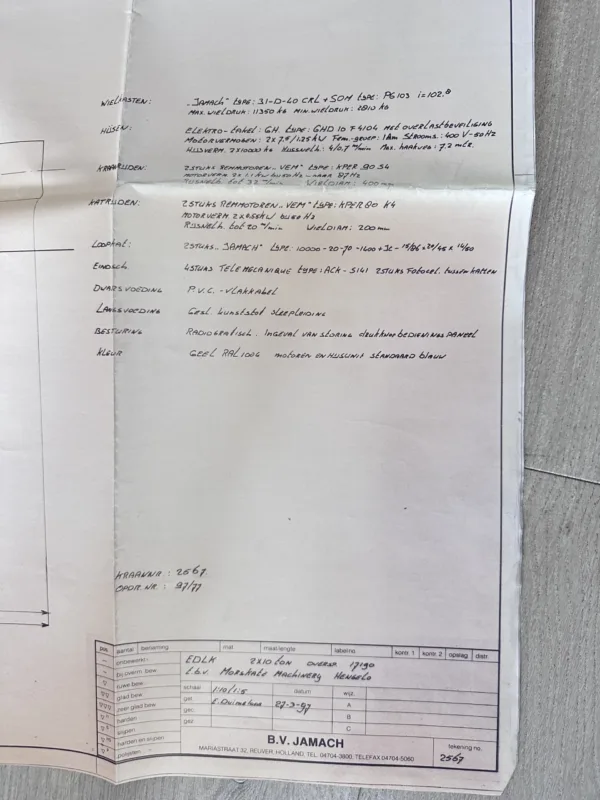 WIELKASTEN: "JAMACH" type: 31-D-40 CKL + SOM type: PG103 i=102,8
MAX. WIELDRUK: 11350 kg MIN. WIELDRUK: 2810 kg
HIJSEN: ELEKTRO-takel: G.H. type: GHD 10 F4104 MET OVERLASTBEVEILIGING
MOTORVERMOGEN: 2x 7.5/1.25 kW Fem.-groep: 1Am Strooms.: 400 V-50 Hz
HIJSVERM. 2x10000 kg HIJSSNELH. 4/0.7 m/min Max. haakweg: 7.2 mtr.
KRAANRIJDEN: 2 STUKS REMMOTOREN "VEM" type: KPER 80 S4
MOTORVERM 2x 1.1 kW bij 50 Hz - naar 87 Hz
RIJSNELH. tot 32 m/min WIELDIAM: 400 mm
KATRIJDEN: 2 STUKS REMMOTOREN "VEM" type: KPER 80 K4
MOTORVERM 2x 0.55 kW bij 50 Hz
RIJSNELH. tot 20 m/min WIELDIAM: 200 mm
LOOPKAT: 2 STUKS "JAMACH" type: 10000-20-70-1400+
EINDSCH. 4 STUKS TELEMECANIQUE type: ACK-S141 2 STUKS Fotocel. tussen katten
DWARSVOEDING P.V.C. - VLAKKABEL
LANGSVOEDING Gesl. kunststof sleepleiding
BESTURING RADIOGRAFISCH. INGEVAL VAN STORING drukknop BEDIENINGSPANEEL
KLEUR GEEL RAL 1004 MOTOREN EN HIJSUNIT STANDAARD blauw
KRAANNR.: 2567
OPDR. NR.: 97/77
pos. aantal benaming mat. maat-lengte label no. kontr. 1 kontr. 2 opslag distr.
onbewerkt: EDLK 2x10 ton OVERSP. 17190
bij overm. bew. t.b.v. MORSKATE MACHINERY HENGELO
ruwe bew.
glad bew. schaal 1:10/1:5 datum wijz.
zeer glad bew. get. 27-3-97 A
harden gec. B
krijpen gez. C
harden en krijpen
polijsten
B.V. JAMACH
MARIASTRAAT 32, REUVER, HOLLAND, TEL. 04704-3800, TELEFAX 04704-5060
tekening no.
2567